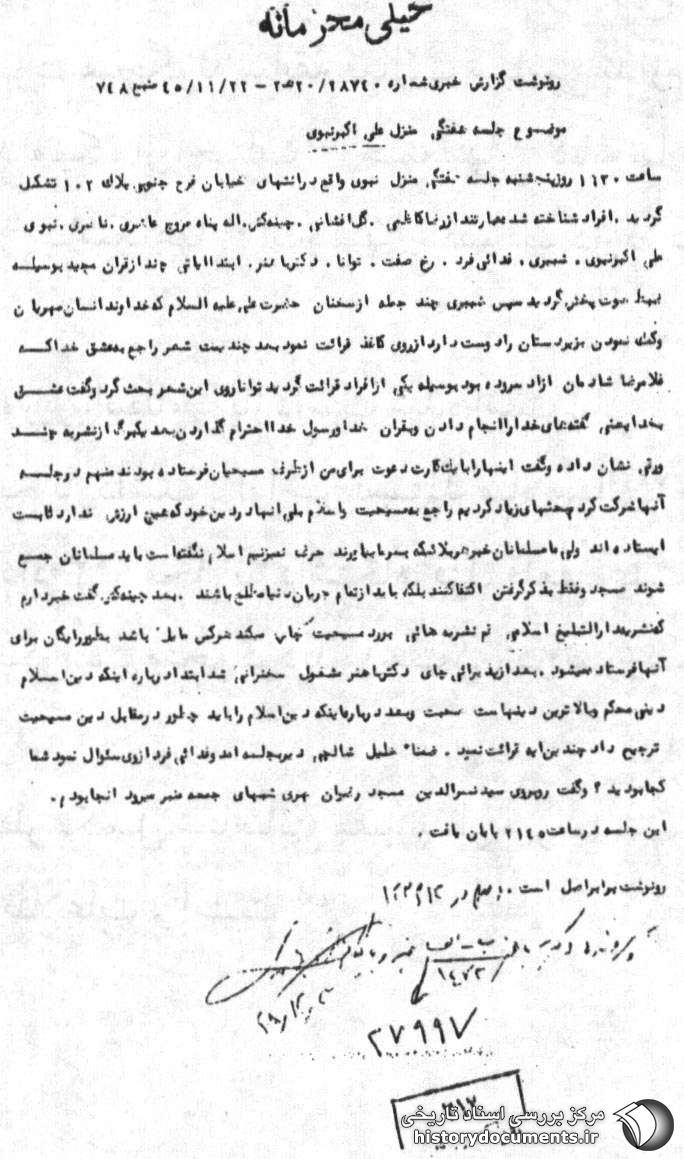 خیلی محرمانه
رونوشت گزارش خبری شماره ۲۸۷۴۰/۲۰ - ۴۵/۱۱/۲۲ منبع ۷۴۸
موضوع جلسه هفتگی منزل علی اکبرنبوی
روز پنجشنبه جلسه هفتگی منزل نبوی واقع در انتهای خیابان فرح جنوبی پلاک ۱۰۲ تشکیل
گردید . افراد شناخته شده عبارتند از رضا کاظمی . گل افشانی . چینه کش . اله پناه مروج عاشری . ناصری . نبوی
علی اکبرنبوی . شبیری . فدائی فرد . رخ صفت . توانا . دکتر باهنر . ابتدا آیاتی چند از قرآن مجید بوسیله
ضبط صوت پخش گردید سپس شبیری چند جمله از سخنان حضرت علی علیه السلام که خداوند انسان مهربان
وکمک نمودن بزیر دستان را دوست دارد از روی کاغذ قرائت نمود بعد چند بیت شعر راجع به عشق خدا که
غلامرضا شادمان آزاد سروده بود بوسیله یکی از افراد قرائت گردید توانا روی این شعر بحث کرد و گفت عشق
بخدا یعنی گفته های خدا را انجام دادن و بقرآن خدا و رسول خدا احترام گذاردن بعد یکبرگ از نشریه چند
ورقی نشان داده و گفت اینها را با یک کارت دعوت برای من از طرف مسیحیان فرستاده بودند منهم در جلسه
آنها شرکت کردم بحثهای زیاد کردیم راجع به مسیحیت و اسلام بلی آنها در دین خود که هیچ ارزش ندارد ثابت
ایستاده اند ولی ما مسلمانان خبر هر بلائیکه بسر ما بیاورند حرف نمیزنیم اسلام نگفته است باید مسلمانان جمع
شوند مسجد و فقط بذکر گرفتن اکتفا کنند بلکه باید از تمام جریان دنیا مطلع باشند . بعد چینه کش گفت خبر دارم
که نشریه دارالتبلیغ اسلامی قم نشریه هائی بر رد مسیحیت چاپ میکند هرکس مایل باشد بطور رایگان برای
آنها فرستاده میشود . بعد از پذیرائی چای دکتر باهنر مشغول سخنرانی شد ابتدا درباره اینکه دین اسلام
دینی محکم و بالاترین دینهاست صحبت و بعد درباره اینکه دین اسلام را باید چطور در مقابل دین مسیحیت
ترجیح داد چندین آیه قرائت نمود . ضمناً خلیل دیر بجلسه آمد و فدائی فرد از وی سئوال نمود شما
کجا بودید ؟ و گفت روبروی سید نصرالدین مسجد رضوان مهری شبهای جمعه منبر میرود آنجا بودم .
این جلسه در ساعت ۲۱۴۵ پایان یافت .
رونوشت برابر اصل است .
۲۷۹۹۷
۳۱۲
مرکز بررسی اسناد تاریخی
historydocuments.ir